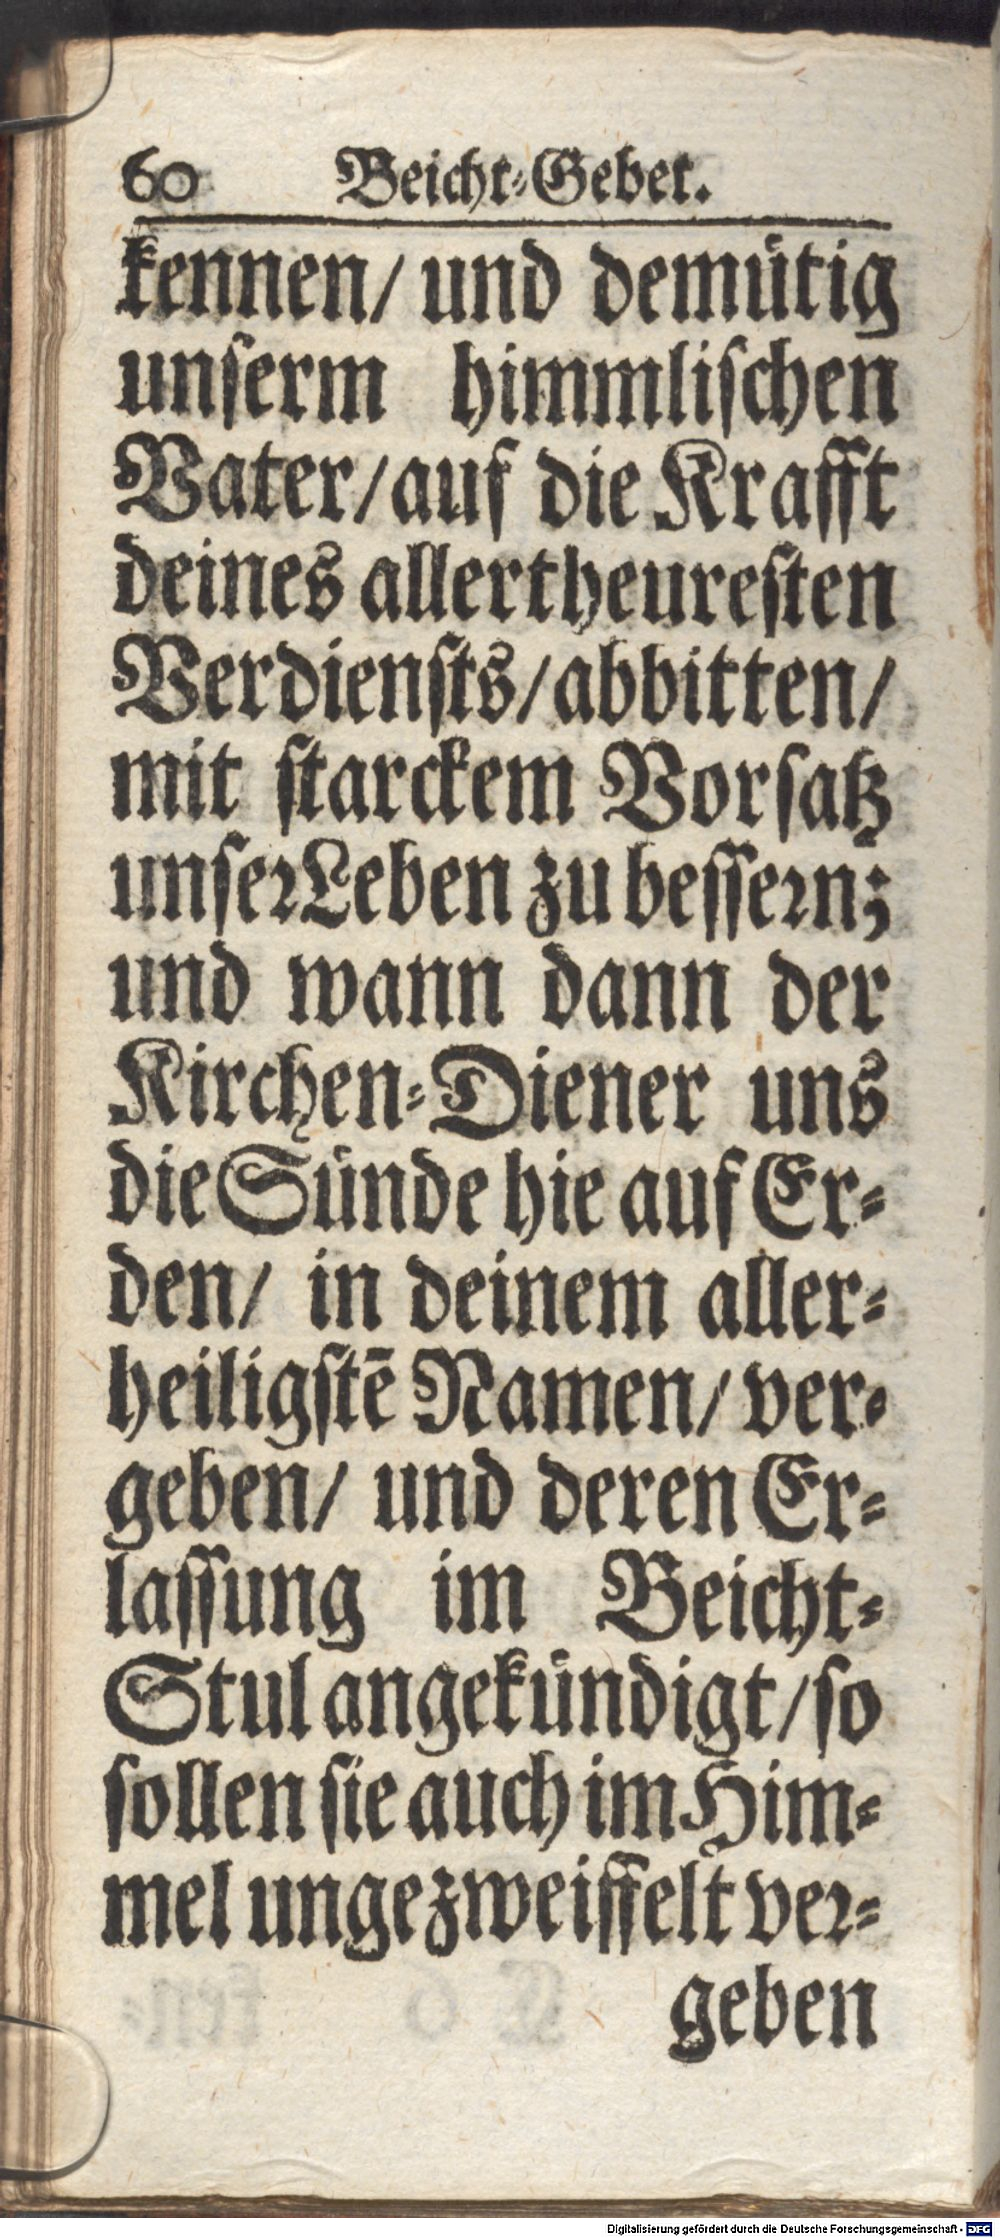 60 Beicht-Gebet.
kennen/ und demütig
unserm himmlischen
Vater/ auf die Krafft
deines allertheuresten
Verdiensts/ abbitten/
mit starckem Vorsatz
unser Leben zu bessern;
und wann dann der
Kirchen-Diener uns
die Sünde hie auf Er-
den/ in deinem aller-
heiligstē Namen/ ver-
geben/ und deren Er-
lassung im Beicht-
Stul angekündigt/ so
sollen sie auch im Him-
mel ungezweiffelt ver-
geben
Digitalisierung gefördert durch die Deutsche Forschungsgemeinschaft - DFG